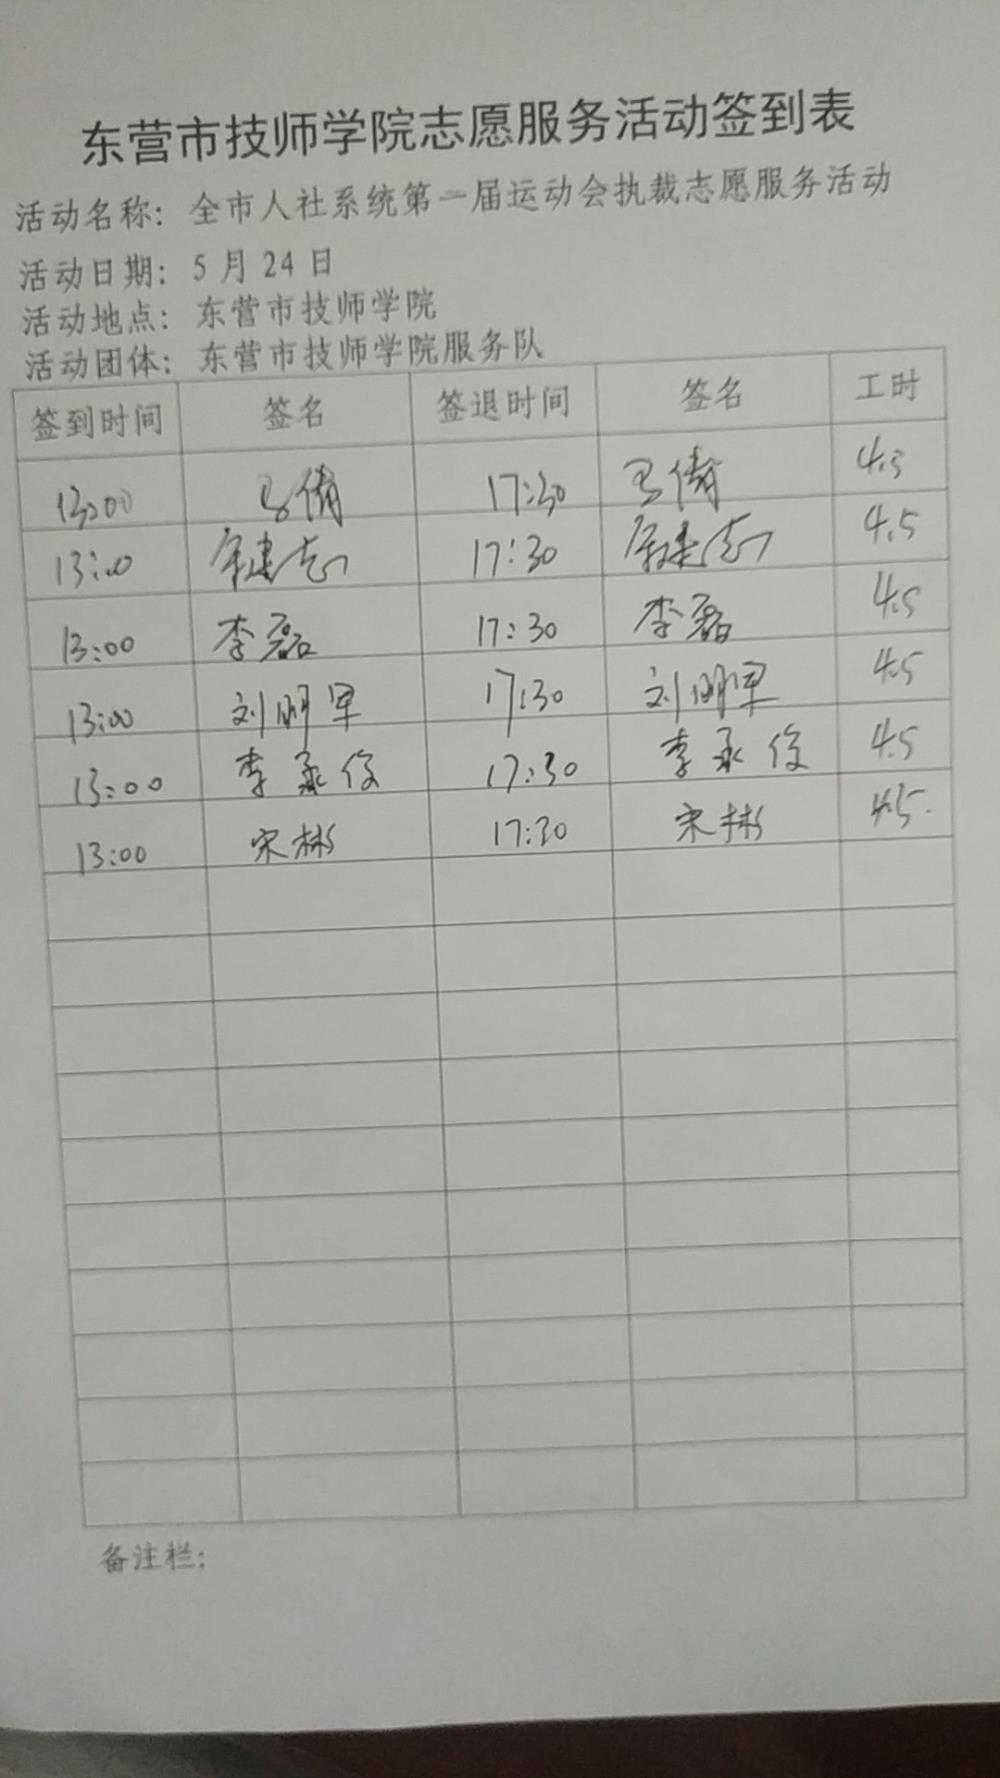 东营市技师学院志愿服务活动签到表
活动名称：全市人社系统第一届运动会执裁志愿服务活动
活动日期：5月24日
活动地点：东营市技师学院
活动团体：东营市技师学院服务队
签到时间 签名 签退时间 签名 工时
13:00 马倩 17:30 马倩 4.5
13:00 建志 17:30 建志 4.5
13:00 李磊 17:30 李磊 4.5
13:00 刘明军 17:30 刘明军 4.5
13:00 李承俊 17:30 李承俊 4.5
13:00 宋彬 17:30 宋彬 4.5
备注栏：